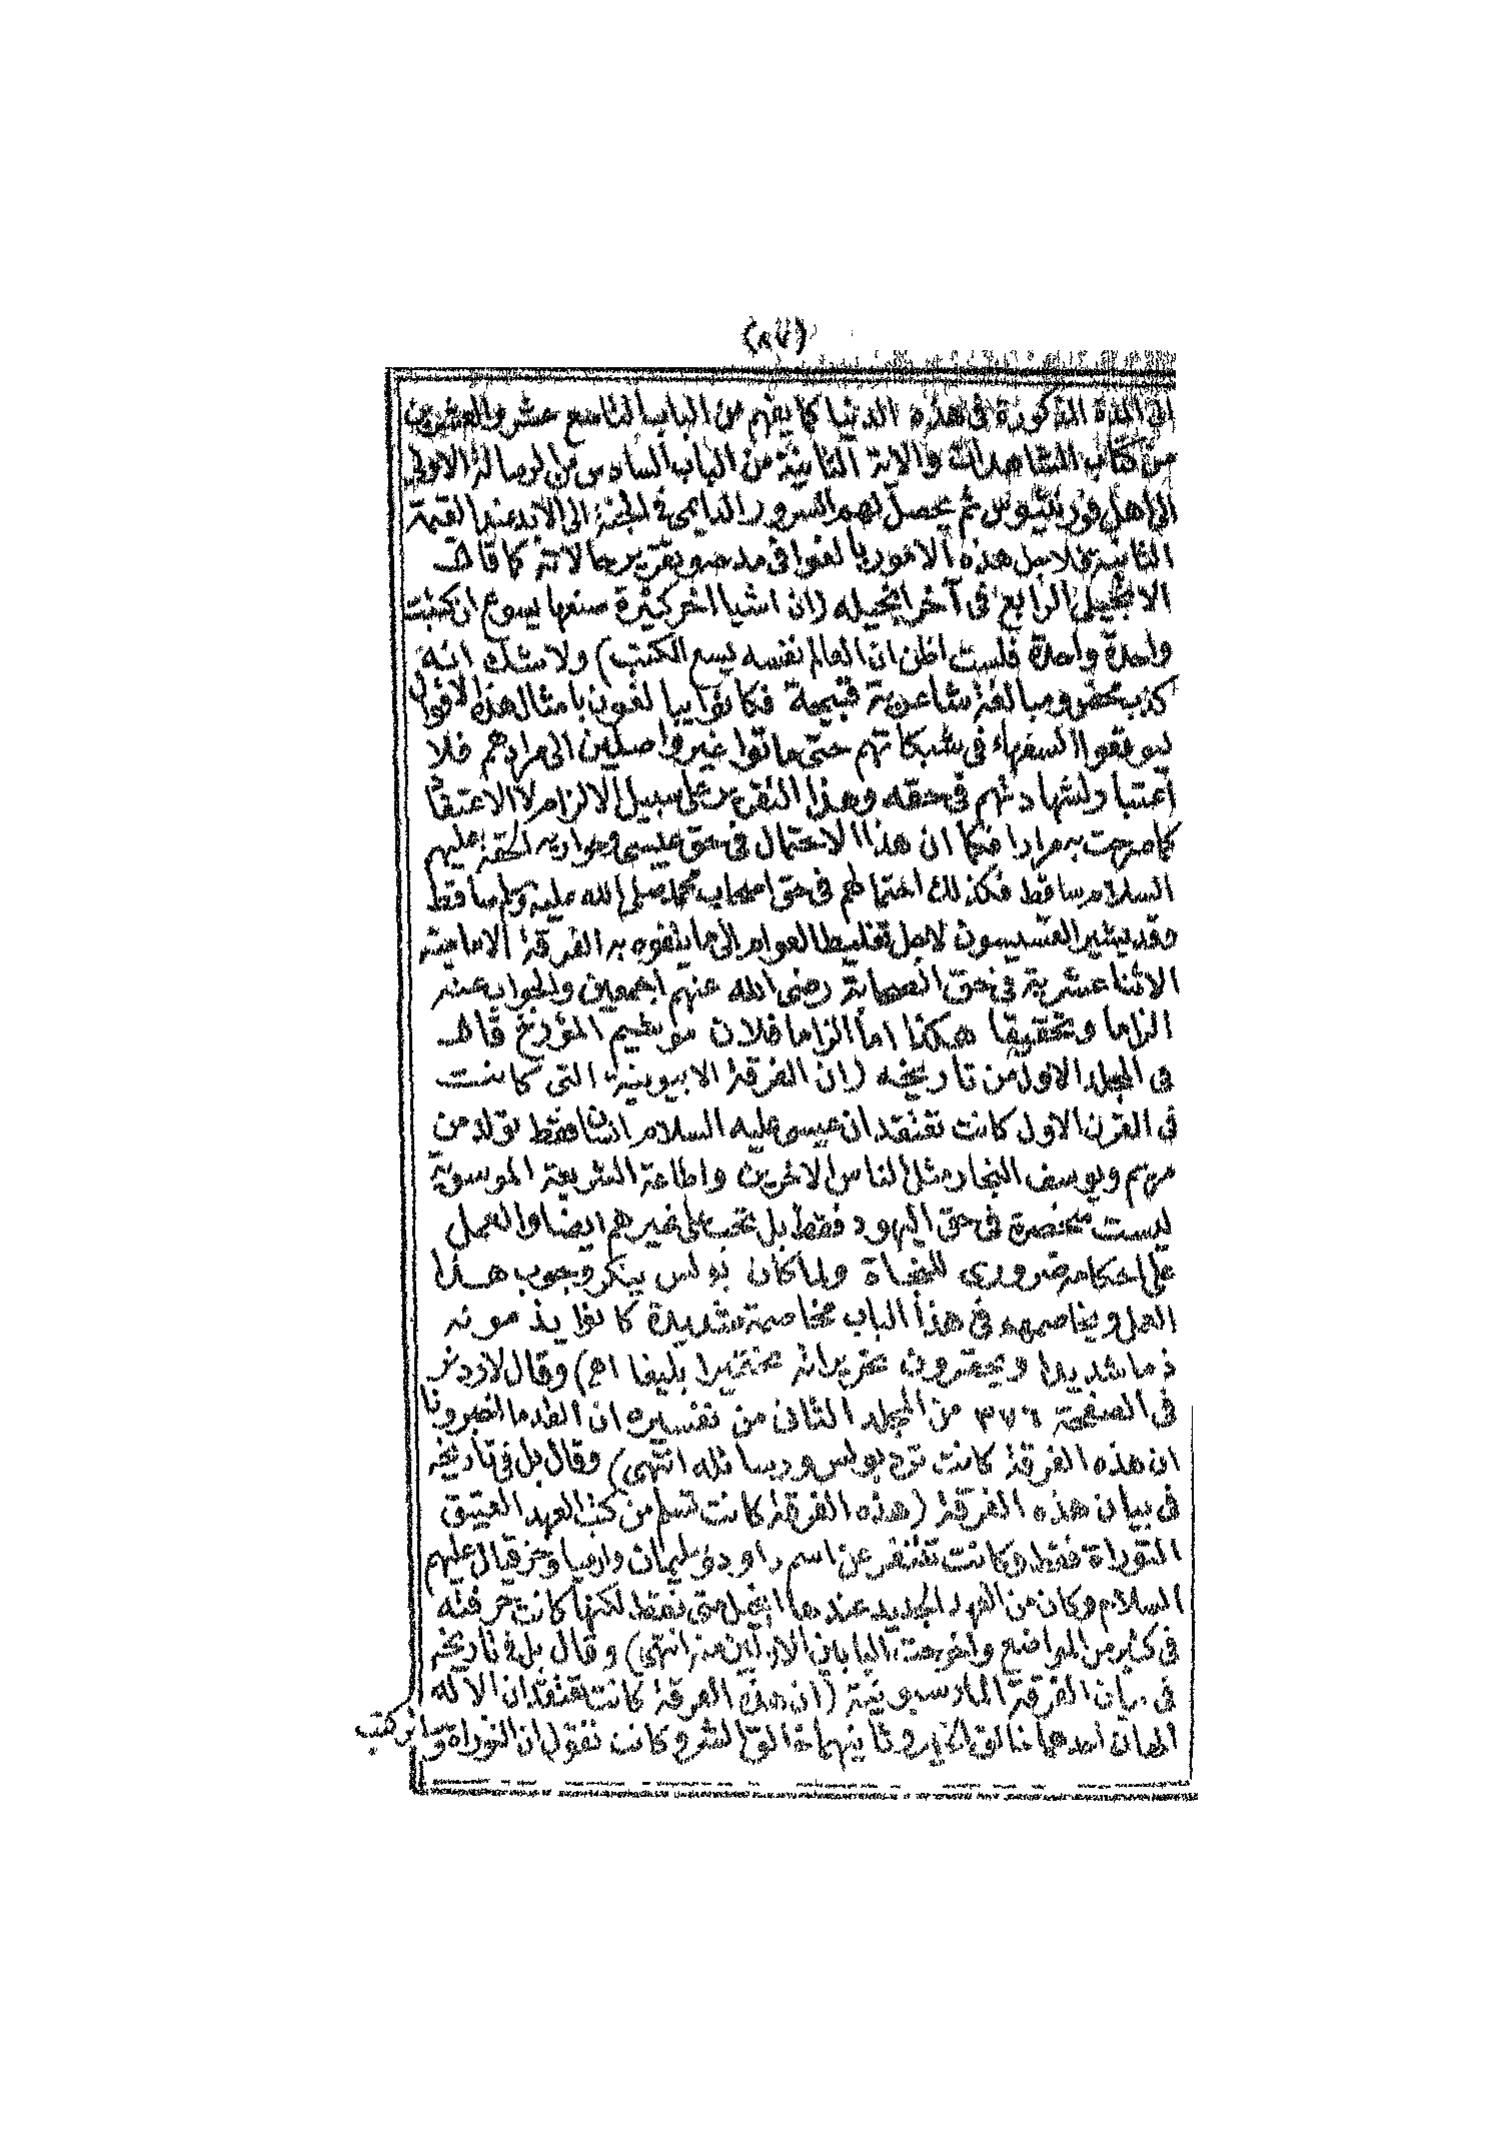 (٨٧)
الى المدة المذكورة فى هذه الدنيا كما يفهم من الباب التاسع عشر والعشرين
من كتاب المشاهدات والاية الثانية من الباب السادس من الرسالة الاولى
الى اهل قورنثيوس ثم يحصل لهم السرور الدايمى فى الجنة الى الابد عند القيمة
الثانية فلاجل هذه الامور بالغوا فى مدحه وتقرير حالاته كما قال
الانجيلى الرابع فى آخر انجيله (ان اشيا اخر كثيرة صنعها يسوع ان كتبت
واحدة واحدة فلست اظن ان العالم نفسه يسع الكتب) ولا شك انه
كذب محض ومبالغة شاعرية قبيحة فكانوا يبالغون بامثال هذه الاقوال
ليوقعوا السفهاء فى شبكاتهم حتى ماتوا غير واصلين الى مرادهم فلا
اعتبار لشهادتهم فى حقه وهذا التقرير على سبيل الالزام لا الاعتقاد
كما صرحت به مرارا فكما ان هذا الاحتمال فى حق عيسى وحواريه الحقة عليهم
السلام ساقط فكذلك احتمالهم فى حق اصحاب محمد صلى الله عليه وسلم ساقط
وقد يشير القسيسون لاجل تغليط العوام الى ما يتفوه به الفرقة الامامية
الاثنا عشرية فى حق الصحابة رضى الله عنهم اجمعين والجواب عنه
الزاما وتحقيقا هكذا اما الزاما فلان موشيم المؤرخ قال
فى المجلد الاول من تاريخه (ان الفرقة الابيونية التى كانت
فى القرن الاول كانت تعتقد ان عيسى عليه السلام انسان فقط تولد من
مريم ويوسف النجار مثل الناس الاخرين واطاعة الشريعة الموسوية
ليست منحصرة فى حق اليهود فقط بل تجب على غيرهم ايضا والعمل
على احكامه ضرورى للنجاة ولما كان بولس ينكر وجوب هذا
العمل ويخاصمهم فى هذا الباب مخاصمة شديدة كانوا يذمونه
ذما شديدا ويحقرون تحريراته تحقيرا بليغا اھ) وقال لاردنر
فى الصفحة ٣٧٦ من المجلد الثانى من تفسيره ان القدما اخبرونا
ان هذه الفرقة كانت ترد بولس ورسائله انتهى) وقال بل فى تاريخه
فى بيان هذه الفرقة (هذه الفرقة كانت تسلم من كتب العهد العتيق
التوراة فقط وكانت تتنفر عن اسم داود وسليمان وارميا وحزقيال عليهم
السلام وكان من العهد الجديد عندها انجيل متى فقط لكنها كانت حرفته
فى كثير من المواضع واخرجت البابين الاولين منه انتهى) وقال بل فى تاريخه
فى بيان الفرقة المارسيونية (ان هذه الفرقة كانت تعتقد ان الاله
الهان احدهما خالق الخير وثانيهما خالق الشر وكانت تقول ان التوراة وسائر كتب